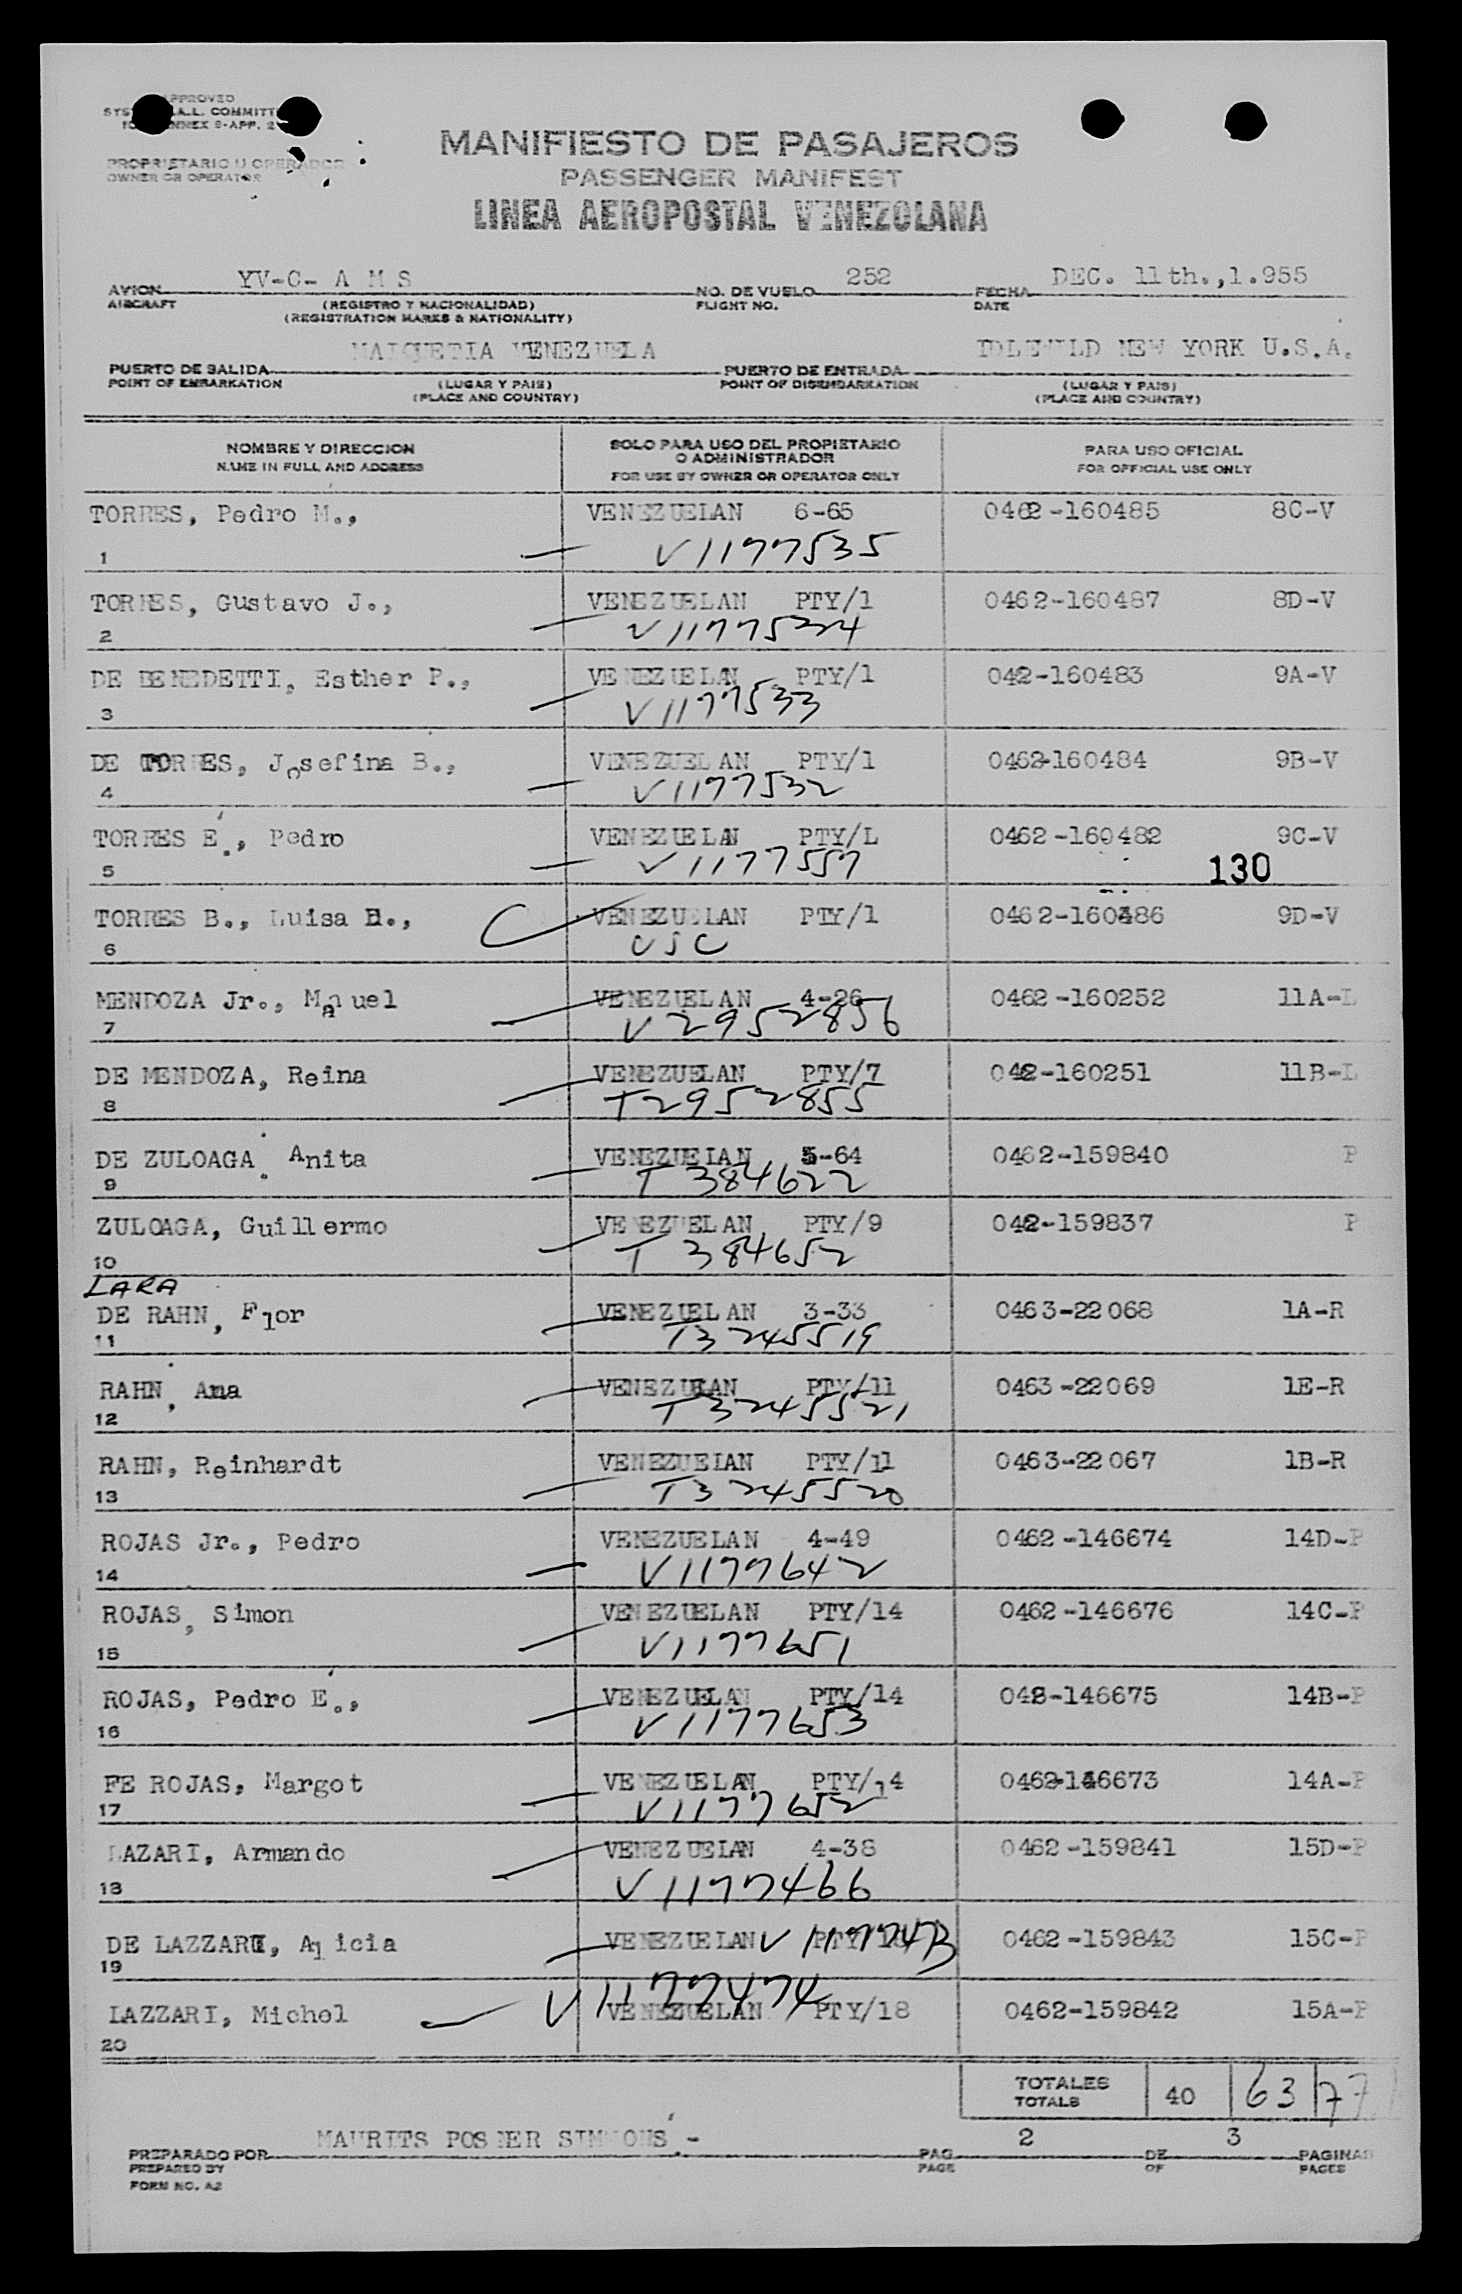 APPROVED
A.L. COMMITT
ANNEX 9-APP. 2
PROPRIETARIO U OPERADOR
OWNER OR OPERATOR
MANIFIESTO DE PASAJEROS
PASSENGER MANIFEST
LINEA AEROPOSTAL VENEZOLANA
AVION YV-C- A M S NO. DE VUELO 252 FECHA DEC. 11th.,1.955
AIRCRAFT (REGISTRO Y NACIONALIDAD) FLIGHT NO. DATE
(REGISTRATION MARKS & NATIONALITY)
PUERTO DE SALIDA MAIQUETIA VENEZUELA PUERTO DE ENTRADA IDLEWILD NEW YORK U.S.A.
POINT OF EMBARKATION (LUGAR Y PAIS) POINT OF DISEMBARKATION (LUGAR Y PAIS)
(PLACE AND COUNTRY) (PLACE AND COUNTRY)
NOMBRE Y DIRECCION SOLO PARA USO DEL PROPIETARIO O ADMINISTRADOR PARA USO OFICIAL
NAME IN FULL AND ADDRESS FOR USE BY OWNER OR OPERATOR ONLY FOR OFFICIAL USE ONLY
TORRES, Pedro M., VENEZUELAN 6-65 0462-160485 8C-V
1 V1177535
TORRES, Gustavo J., VENEZUELAN PTY/1 0462-160487 8D-V
2 V1177534
DE BENEDETTI, Esther P., VENEZUELAN PTY/1 0462-160483 9A-V
3 V1177533
DE TORRES, Josefina B., VENEZUELAN PTY/1 0462-160484 9B-V
4 V1177532
TORRES E., Pedro VENEZUELAN PTY/L 0462-160482 9C-V
5 V1177557 130
TORRES B., Luisa E., C VENEZUELAN PTY/1 0462-160486 9D-V
6 USC
MENDOZA Jr., Manuel VENEZUELAN 4-26 0462-160252 11A-L
7 V2952856
DE MENDOZA, Reina VENEZUELAN PTY/7 0462-160251 11B-L
8 T2952855
DE ZULOAGA, Anita VENEZUELAN 5-64 0462-159840 P
9 T 384622
ZULOAGA, Guillermo VENEZUELAN PTY/9 0462-159837 P
10 T 384652
LARA
DE RAHN, Flor VENEZUELAN 3-33 0463-22068 1A-R
11 T3245519
RAHN, Ana VENEZUELAN PTY/11 0463-22069 1E-R
12 T3245521
RAHN, Reinhardt VENEZUELAN PTY/11 0463-22067 1B-R
13 T3245520
ROJAS Jr., Pedro VENEZUELAN 4-49 0462-146674 14D-P
14 V1177642
ROJAS, Simon VENEZUELAN PTY/14 0462-146676 14C-P
15 V1177651
ROJAS, Pedro E., VENEZUELAN PTY/14 0462-146675 14B-P
16 V1177653
FE ROJAS, Margot VENEZUELAN PTY/14 0462-146673 14A-P
17 V1177652
LAZARI, Armando VENEZUELAN 4-38 0462-159841 15D-P
18 V1177466
DE LAZZARI, Alicia VENEZUELAN V 1177473 PTY/18 0462-159843 15C-P
19
V1177474
LAZZARI, Michel VENEZUELAN PTY/18 0462-159842 15A-P
20
TOTALES 40 63 77
TOTALS
PREPARADO POR MAURITS POSNER SIMMONS.- PAG. 2 DE 3 PAGINAS
PREPARED BY PAGE OF PAGES
FORM NO. A2